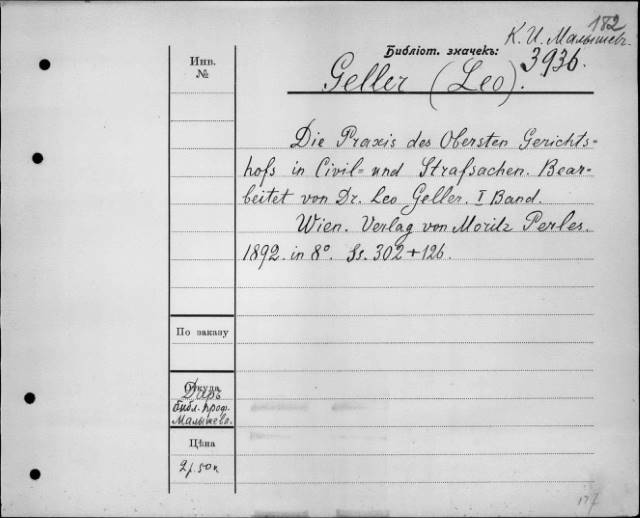 182
К. И. Малышев.
Библіот. значекъ: 3936.
Geller (Leo).
Инв.
№
Die Praxis des Obersten Gerichts=
hofs in Civil= und Strafsachen. Bear=
beitet von Dr. Leo Geller. I Band.
Wien. Verlag von Moritz Perles.
1892. in 8°. Ss. 302+126.
По заказу
Откуда
Даръ
библ. проф.
Малышева.
Цѣна
2 р. 50 к.